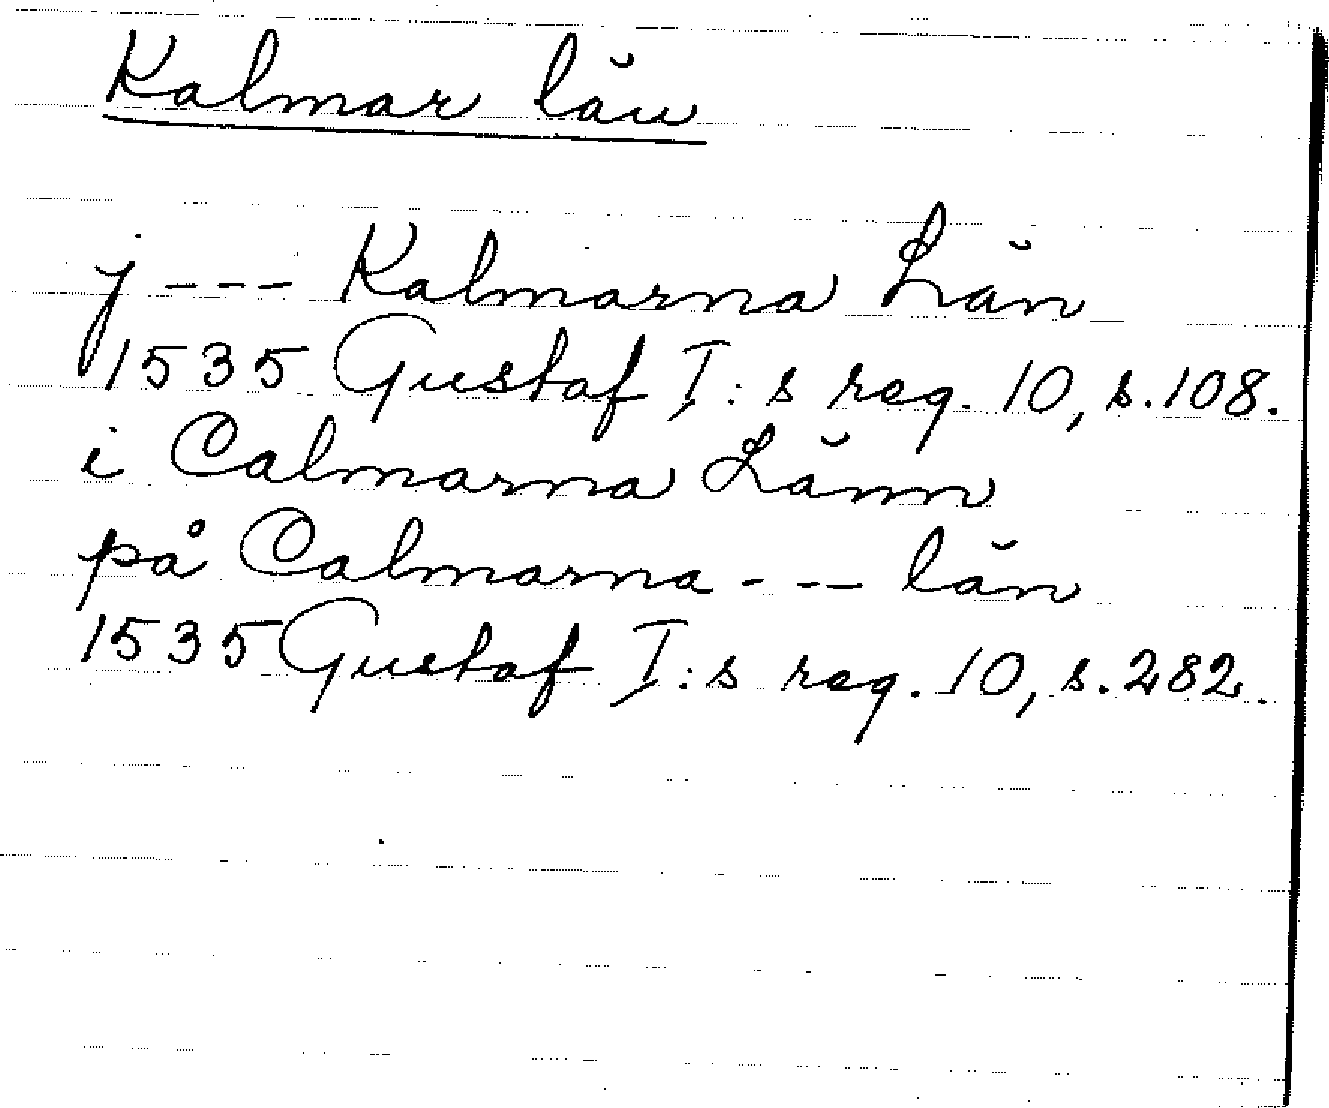 Kalmar län
j --- Kalmarna Län
1535 Gustaf I:s reg. 10, s. 108.
i Calmarna Länn
på Calmarna --- län
1535 Gustaf I:s reg. 10, s. 282.